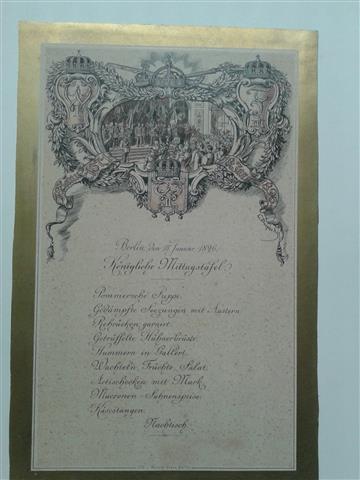 Berlin, den 18. Januar 1896.
Königliche Mittagstafel.
Pommersche Suppe.
Gedämpfte Seezungen mit Austern.
Rehrücken garnirt.
Getrüffelte Hühnerbrüste.
Hummern in Gallert.
Wachteln, Früchte, Salat.
Artischocken mit Mark.
Macronen-Sahnenspeise.
Käsestangen.
Nachtisch.